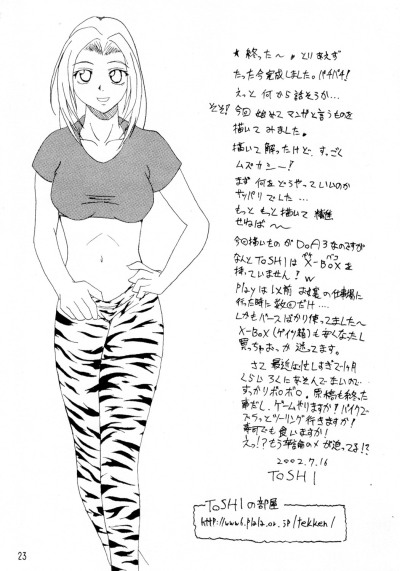 ★ 終ったー。とりあえず
たった今完成しました。パチパチ!
えっと 何から話そうか…
そそ! 今回 始めて マンガと言うものを
描いてみました。
描いて解ったけど、すっごく
ムズカシー!
まず 何をどうやっていいのか
サッパリでした…
もっと もっと描いて 精進
せねばー
今回描いたのが DOA3なのですが
なんとTOSHIは X-BOXを
持っていません! w
Playは1ヶ月前 お友達の仕事場に
行った時に 数回だけ…
しかもバースばかり使ってましたー
X-BOX(ゲイツ箱)も安くなったし
買っちゃおっか 迷ってます。
さて 最近忙しすぎで1ヶ月
くらいろくにあそんでまいので
すっかりボロボロ。原稿も終った
事だし、ゲームやりますか!バイクで
ズラっとツーリング行きますか!
寿司でも食いますか!
えっ!?もう 〆が迫ってる!?
2002.7.16
TOSHI
TOSHIの部屋
http://www6.plala.or.jp/tekken/
23